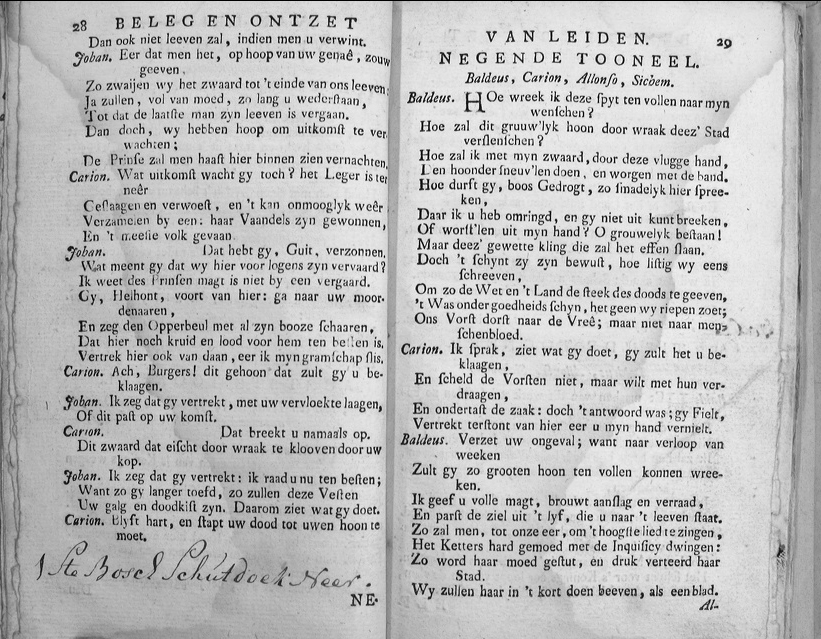 28 BELEG EN ONTZET
Dan ook niet leeven zal, indien men u verwint.
Johan. Eer dat men het, op hoop van uw genaê, zouw
geeven,
Zo zwaijen wy het zwaard tot 't einde van ons leeven;
Ja zullen, vol van moed, zo lang u wederſtaan,
Tot dat de laatſte man zyn leeven is vergaan.
Dan doch, wy hebben hoop om uitkomſt te ver
wachten;
De Prinſe zal men haaſt hier binnen zien vernachten.
Carion. Wat uitkomſt wacht gy toch? het Leger is ter
neêr
Geſlaagen en verwoeſt, en 't kan onmooglyk weêr
Verzamelen by een: haar Vaandels zyn gewonnen,
En 't meeſte volk gevaan.
Johan. Dat hebt gy, Guit, verzonnen.
Wat meent gy dat wy hier voor logens zyn vervaard?
Ik weet des Prinſen magt is niet by een vergaard.
Gy, Helhont, voort van hier: ga naar uw moor-
denaaren,
En zeg den Opperbeul met al zyn booze ſchaaren,
Dat hier noch kruid en lood voor hem ten beſten is.
Vertrek hier ook van daan, eer ik myn gramſchap ſlis.
Carion. Ach, Burgers! dit gehoon dat zult gy u be-
klaagen.
Johan. Ik zeg dat gy vertrekt, met uw vervloekte laagen,
Of dit paſt op uw komſt.
Carion. Dat breekt u namaals op.
Dit zwaard dat eiſcht door wraak te klooven door uw
kop.
Johan. Ik zeg dat gy vertrekt: ik raad u nu ten beſten;
Want zo gy langer toefd, zo zullen deze Veſten
Uw galg en doodkiſt zyn. Daarom ziet wat gy doet.
Carion. Blyft hart, en ſtapt uw dood tot uwen hoon te
moet.
NE-
VAN LEIDEN. 29
NEGENDE TOONEEL.
Baldeus, Carion, Allonſo, Sichem.
Baldeus. HOe wreek ik deze ſpyt ten vollen naar myn
wenſchen?
Hoe zal dit gruuw'lyk hoon door wraak deez' Stad
verſlenſchen?
Hoe zal ik met myn zwaard, door deze vlugge hand,
Een hoonder ſneuv'len doen, en worgen met de hand.
Hoe durft gy, boos Gedrogt, zo ſmadelyk hier ſpree-
ken,
Daar ik u heb omringd, en gy niet uit kunt breeken,
Of worſt'len uit myn hand? O grouwelyk beſtaan!
Maar deez' gewette kling die zal het effen ſlaan.
Doch 't ſchynt zy zyn bewuſt, hoe liſtig wy eens
ſchreeven,
Om zo de Wet en 't Land de ſteek des doods te geeven,
't Was onder goedheids ſchyn, het geen wy riepen zoet;
Ons Vorſt dorſt naar de Vreê; maar niet naar men-
ſchenbloed.
Carion. Ik ſprak, ziet wat gy doet, gy zult het u be-
klaagen,
En ſcheld de Vorſten niet, maar wilt met hun ver-
draagen,
En ondertaſt de zaak: doch 't antwoord was; gy Fielt,
Vertrekt terſtont van hier eer u myn hand vernielt.
Baldeus. Verzet uw ongeval; want naar verloop van
weeken
Zult gy zo grooten hoon ten vollen konnen wree-
ken.
Ik geef u volle magt, brouwt aanſlag en verraad,
En parſt de ziel uit 't lyf, die u naar 't leeven ſtaat.
Zo zal men, tot onze eer, om 't hoogſte lied te zingen,
Het Ketters hard gemoed met de Inquiſicy dwingen:
Zo word haar moed geſtut, en druk verteerd haar
Stad.
Wy zullen haar in 't kort doen beeven, als een blad.
Al-